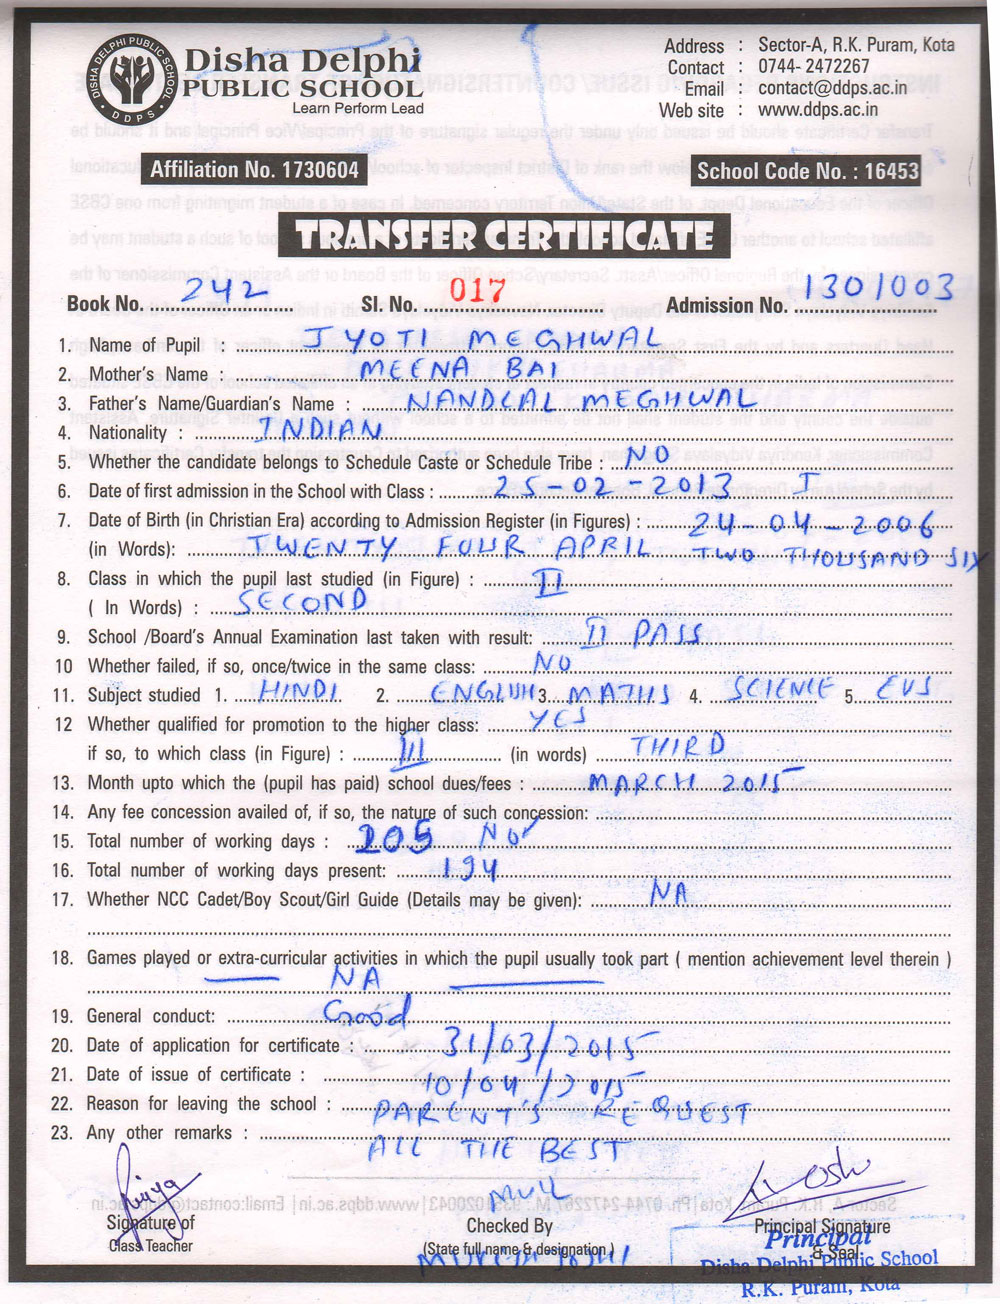 DISHA DELPHI PUBLIC SCHOOL
DDPS
Disha Delphi
PUBLIC SCHOOL
Learn Perform Lead
Address : Sector-A, R.K. Puram, Kota
Contact : 0744- 2472267
Email : contact@ddps.ac.in
Web site : www.ddps.ac.in
Affiliation No. 1730604
School Code No. : 16453
TRANSFER CERTIFICATE
Book No. 242 Sl No. 017 Admission No. 1301003
1. Name of Pupil : JYOTI MEGHWAL
2. Mother's Name : MEENA BAI
3. Father's Name/Guardian's Name : NANDLAL MEGHWAL
4. Nationality : INDIAN
5. Whether the candidate belongs to Schedule Caste or Schedule Tribe : NO
6. Date of first admission in the School with Class : 25-02-2013 I
7. Date of Birth (in Christian Era) according to Admission Register (in Figures) : 24-04-2006
(in Words): TWENTY FOUR APRIL TWO THOUSAND SIX
8. Class in which the pupil last studied (in Figure) : II
( In Words) : SECOND
9. School /Board's Annual Examination last taken with result: II PASS
10 Whether failed, if so, once/twice in the same class: NO
11. Subject studied 1. HINDI 2. ENGLISH 3. MATHS 4. SCIENCE 5. EVS
12 Whether qualified for promotion to the higher class: YES
if so, to which class (in Figure) : III (in words) THIRD
13. Month upto which the (pupil has paid) school dues/fees : MARCH 2015
14. Any fee concession availed of, if so, the nature of such concession: NO
15. Total number of working days : 205
16. Total number of working days present: 194
17. Whether NCC Cadet/Boy Scout/Girl Guide (Details may be given): NA
18. Games played or extra-curricular activities in which the pupil usually took part ( mention achievement level therein )
NA
19. General conduct: Good
20. Date of application for certificate : 31/03/2015
21. Date of issue of certificate : 10/04/2015
22. Reason for leaving the school : PARENT'S REQUEST
23. Any other remarks : ALL THE BEST
Signature of
Class Teacher
Checked By
(State full name & designation )
Principal Signature
& Seal
Principal
Disha Delphi Public School
R.K. Puram, Kota